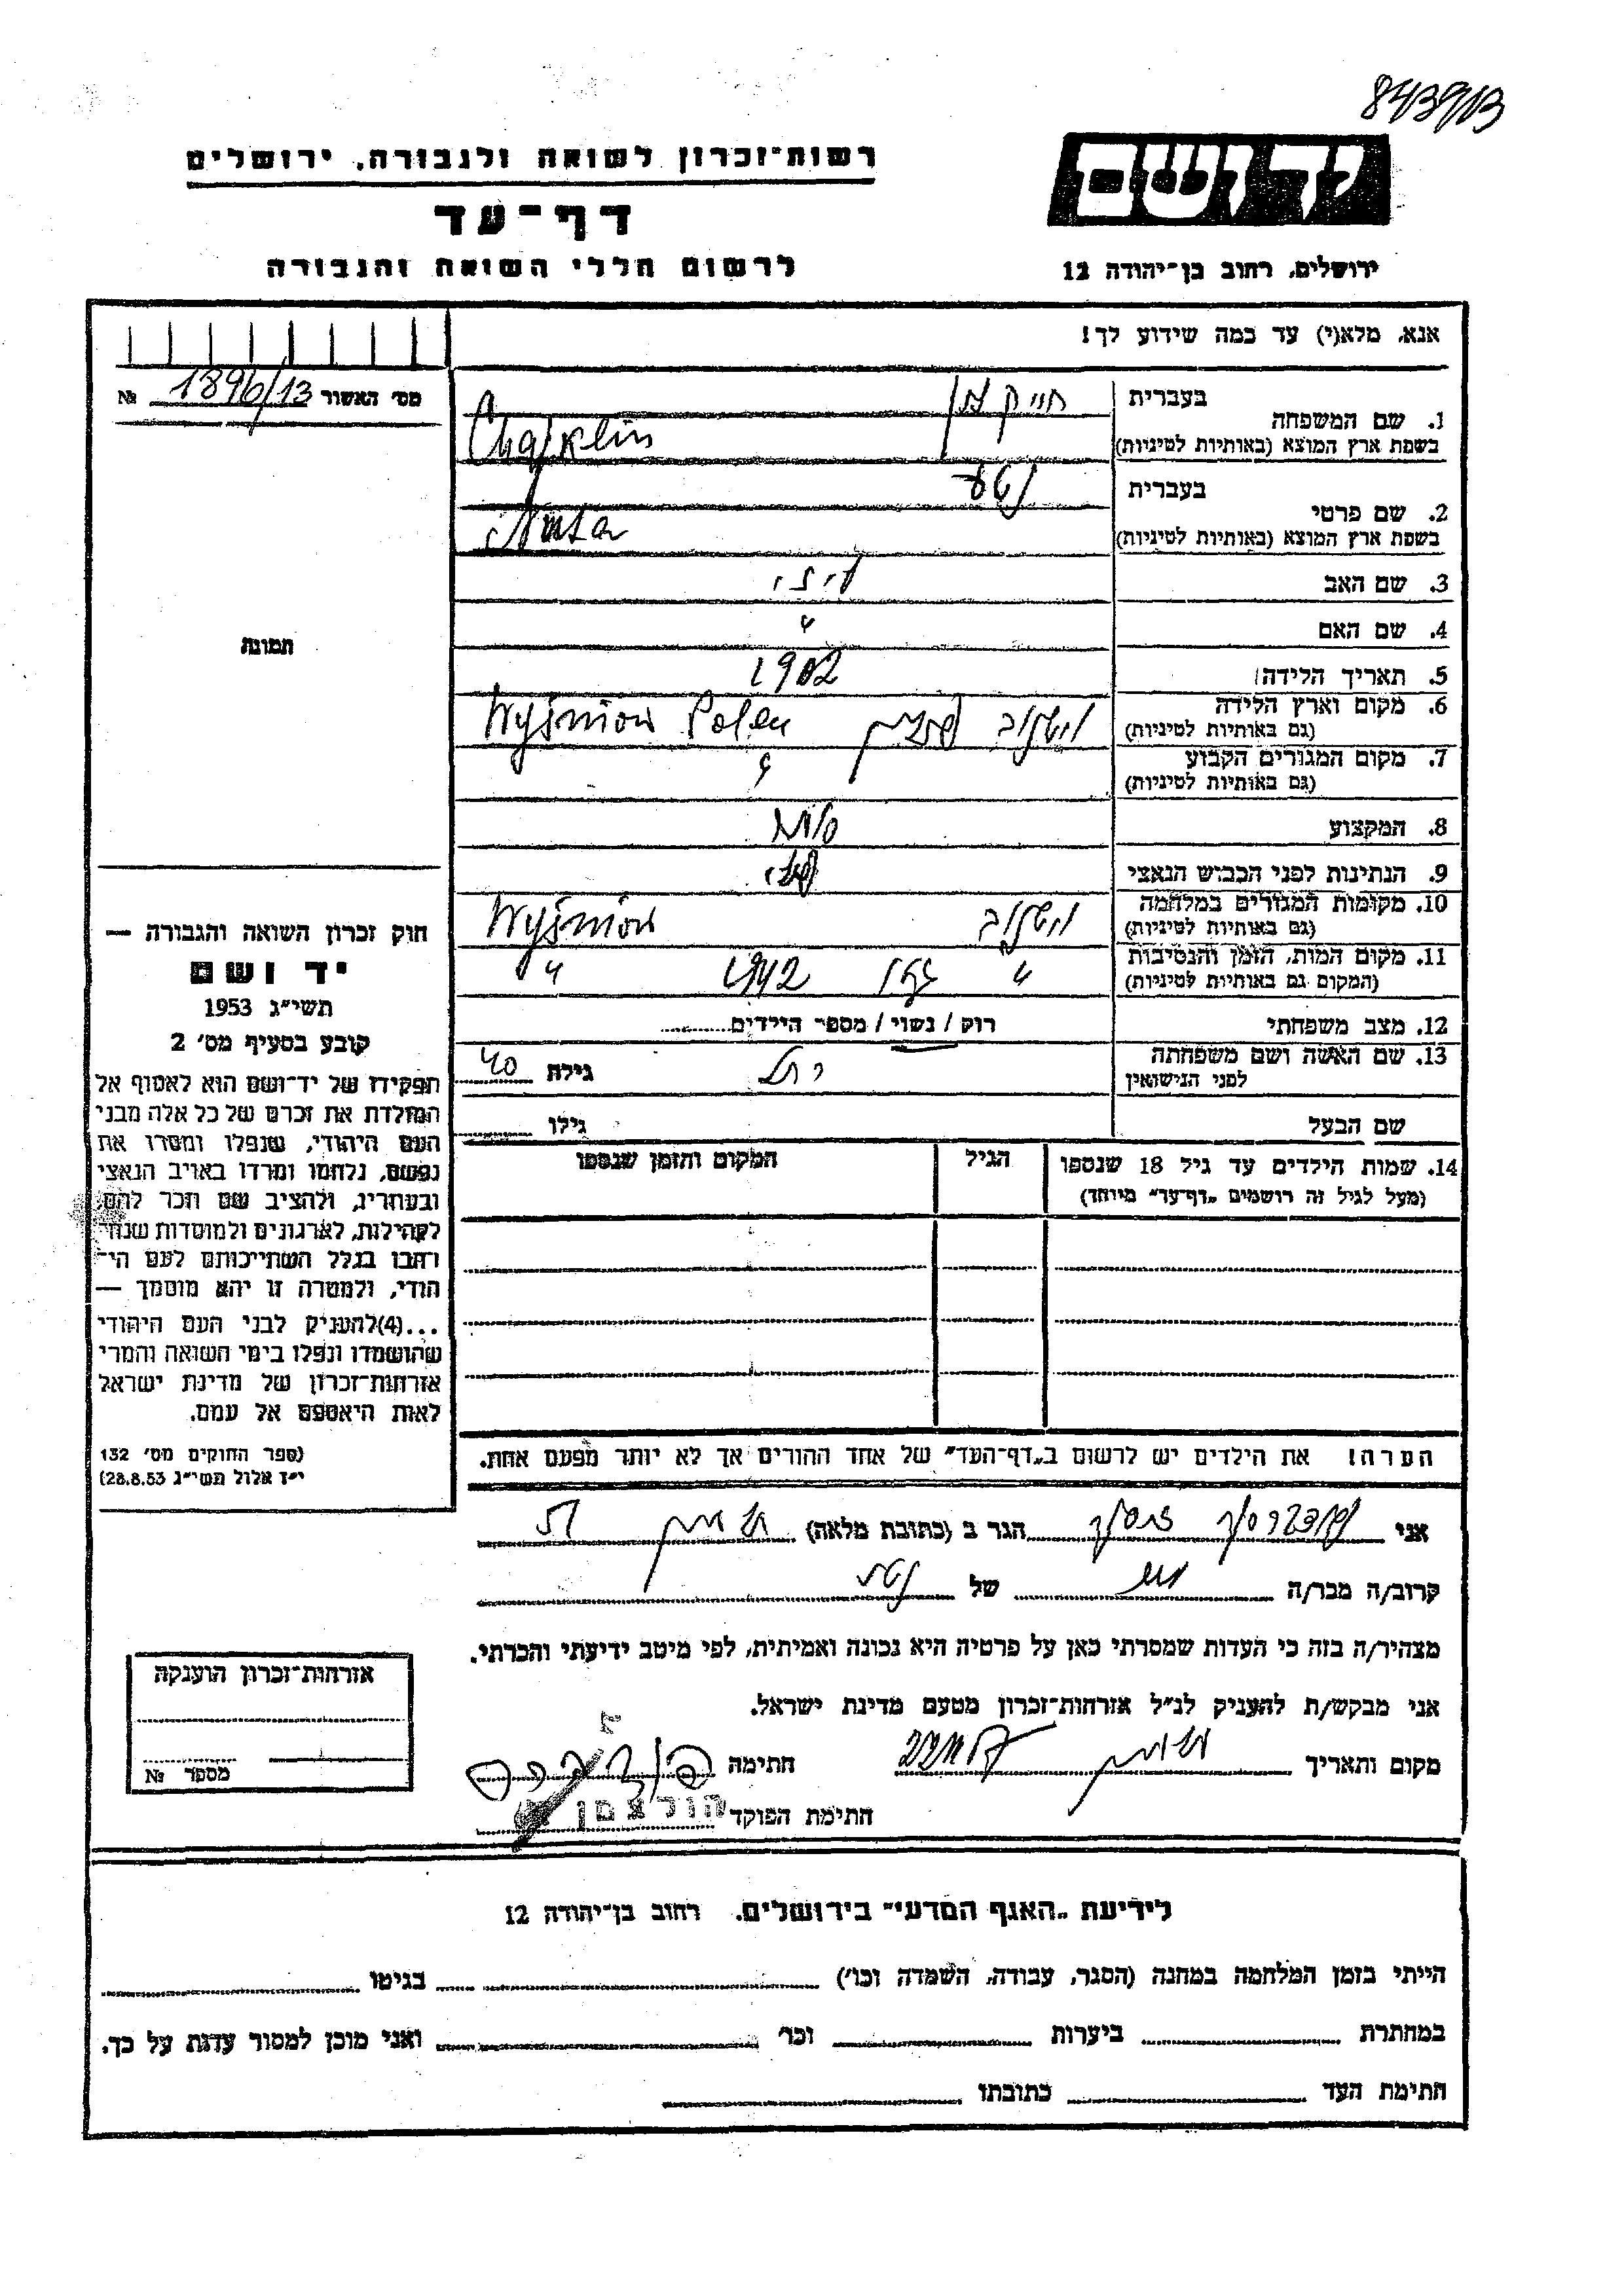 8439/13
רשות־זכרון לשואה ולגבורה, ירושלים
יד ושם
דף־עד
לרשום חללי השואה והגבורה
ירושלים, רחוב בן־יהודה 12
אנא, מלא(י) עד כמה שידוע לך!
מס׳ האשור 1896/13 №
1. שם המשפחה
בעברית
בשפת ארץ המוצא (באותיות לטיניות) Chajklin
2. שם פרטי
בעברית נטע
בשפת ארץ המוצא (באותיות לטיניות) Nuta
3. שם האב
4. שם האם
5. תאריך הלידה 1902
6. מקום וארץ הלידה
(גם באותיות לטיניות) Wyśniow Polen
7. מקום המגורים הקבוע
(גם באותיות לטיניות)
8. המקצוע
9. הנתינות לפני הכבוש הנאצי
10. מקומות המגורים במלחמה
(גם באותיות לטיניות) Wyśniow
11. מקום המות, הזמן והנסיבות
(המקום גם באותיות לטיניות) " 1942 "
12. מצב משפחתי רוק / נשוי / מספר הילדים
13. שם האשה ושם משפחתה
לפני הנישואין גילה 40
שם הבעל גילו
14. שמות הילדים עד גיל 18 שנספו
(מעל לגיל זה רושמים „דף־עד" מיוחד)
הגיל
המקום והזמן שנספו
הערה! את הילדים יש לרשום ב„דף־העד" של אחד ההורים אך לא יותר מפעם אחת.
תמונה
חוק זכרון השואה והגבורה —
יד ושם
תשי״ג 1953
קובע בסעיף מס׳ 2
תפקידו של יד־ושם הוא לאסוף אל
המולדת את זכרם של כל אלה מבני
העם היהודי, שנפלו ומסרו את
נפשם, נלחמו ומרדו באויב הנאצי
ובעוזריו, ולהציב שם וזכר להם,
לקהילות, לארגונים ולמוסדות שנח־
רבו בגלל השתייכותם לעם הי־
הודי, ולמטרה זו יהא מוסמך —
...(4)להעניק לבני העם היהודי
שהושמדו ונפלו בימי השואה והמרי
אזרחות־זכרון של מדינת ישראל
לאות היאספם אל עמם.
(ספר החוקים מס׳ 132
י״ז אלול תשי״ג 28.8.53)
אני הגר ב (כתובת מלאה)
קרוב/ה מכר/ה של נטע
מצהיר/ה בזה כי העדות שמסרתי כאן על פרטיה היא נכונה ואמיתית, לפי מיטב ידיעתי והכרתי.
אני מבקש/ת להעניק לנ״ל אזרחות־זכרון מטעם מדינת ישראל.
מקום ותאריך חתימה
חתימת הפוקד הולצמן
אזרחות־זכרון הוענקה
מספר №
לידיעת „האגף המדעי" בירושלים. רחוב בן־יהודה 12
הייתי בזמן המלחמה במחנה (הסגר, עבודה, השמדה וכו׳) בגיטו
במחתרת ביערות וכו׳ ואני מוכן למסור עדות על כך.
חתימת העד כתובתו